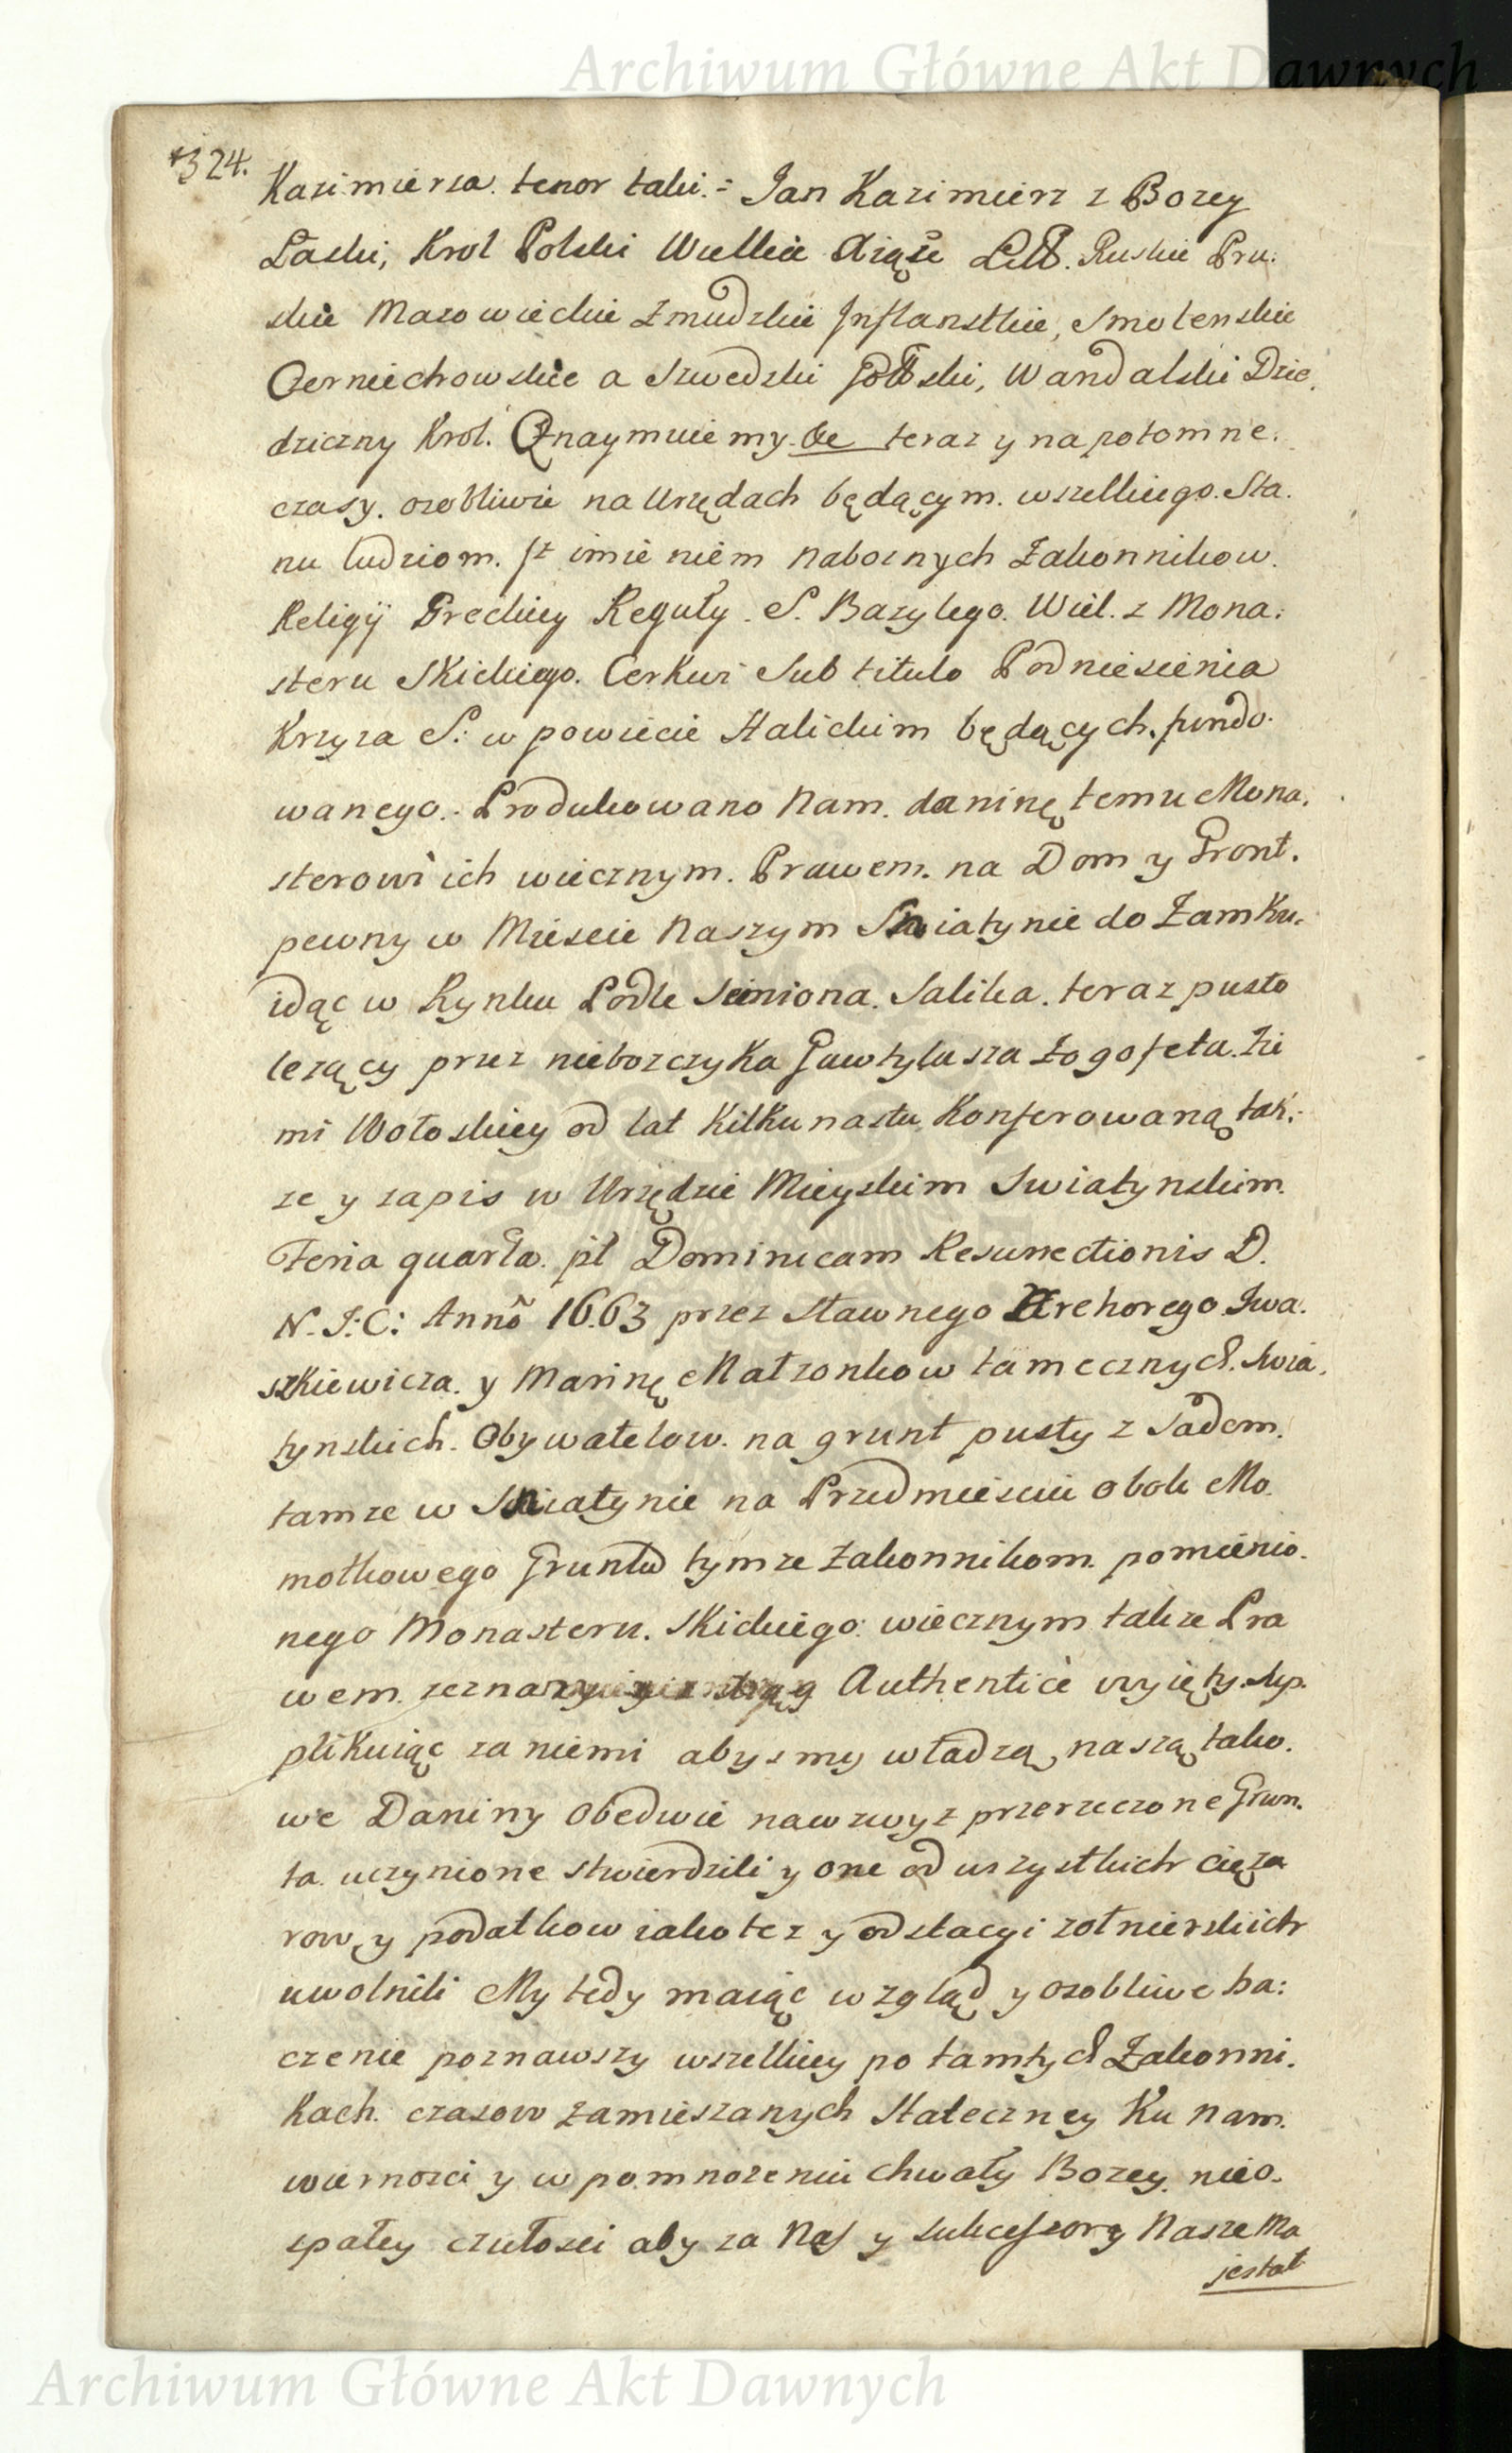 Archiwum Główne Akt Dawnych
324.
Kazimierza. tenor taki.- Jan Kazimierz z Bozey
Łaski, Krol Polski Wielkie Xiąże Litt. Ruskie Pru:
skie Mazowieckie Zmudzkie Jnflanstkie, Smolenskie
Czerniechowskie a Szwedzki Gottski, Wandalski Dzie.
dziczny Krol. Oznaymuiemy. teraz y napotomne.
czasy. osobliwie na Urzędach będącym. wszelkiego. Sta.
nu ludziom. Jz imie niem Naboznych Zakonnikow.
Religÿ Greckiey Reguły. S. Bazylego. Wiel. z Mona:
steru Skickiego. Cerkwi Sub titulo Podniesienia
Krzyza S: w powiecie Halickim będących. fundo.
wanego. Produkowano Nam. daninę temu Mona.
sterowi ich wiecznym. Prawem. na Dom y Gront.
pewny w Miescie Naszym Sniatynie do Zamku.
idąc w Rynku Podle Semiona. Salika. teraz pusto
lezący przez nieboszczyka Gawtylusza Łogofeta. Zie
mi Wołoskiey od lat Kilkunastu Konferowaną tak:
ze y zapis w Urzędzie Mieyskim Swiatynskim.
Feria quarta. pt Dominicam Resurrectionis D.
N. J: C: Anno 1663 przez Sławnego Hrehorego Jwa.
szkiewicza. y Marinę Małzonkow tamecznych. Swia.
tynskich. Obywatelow. na grunt pusty z Sadem.
tamze w Sniatynie na Przedmieściu obok Mo.
motkowego Gruntu tymze Zakonnikom. pomienio.
nego Monasteru. Skickiego: wiecznym takze Pra
wem. zeznany Authenticè wyięty. Sup.
plikuiąc za niemi abysmy władzą naszą tako.
we Daniny obedwie nawzwyz przerzeczone Grun.
ta. uczynione stwierdzili y one od wszystkich cięża
row y podatkow iako tez y od stacyi zołnierskich
uwolnili My tedy maiąc wzgląd y osobliwe ba:
czenie poznawszy wszelkiey po tamtych Zakonni.
kach. czasow zamieszanych Stateczney Ku Nam.
wiernosci y w pomnozeniu chwały Bozey. nieo.
spałey czułosci aby za Nas y Sukcessorow Nasze Ma
jestat
Archiwum Główne Akt Dawnych